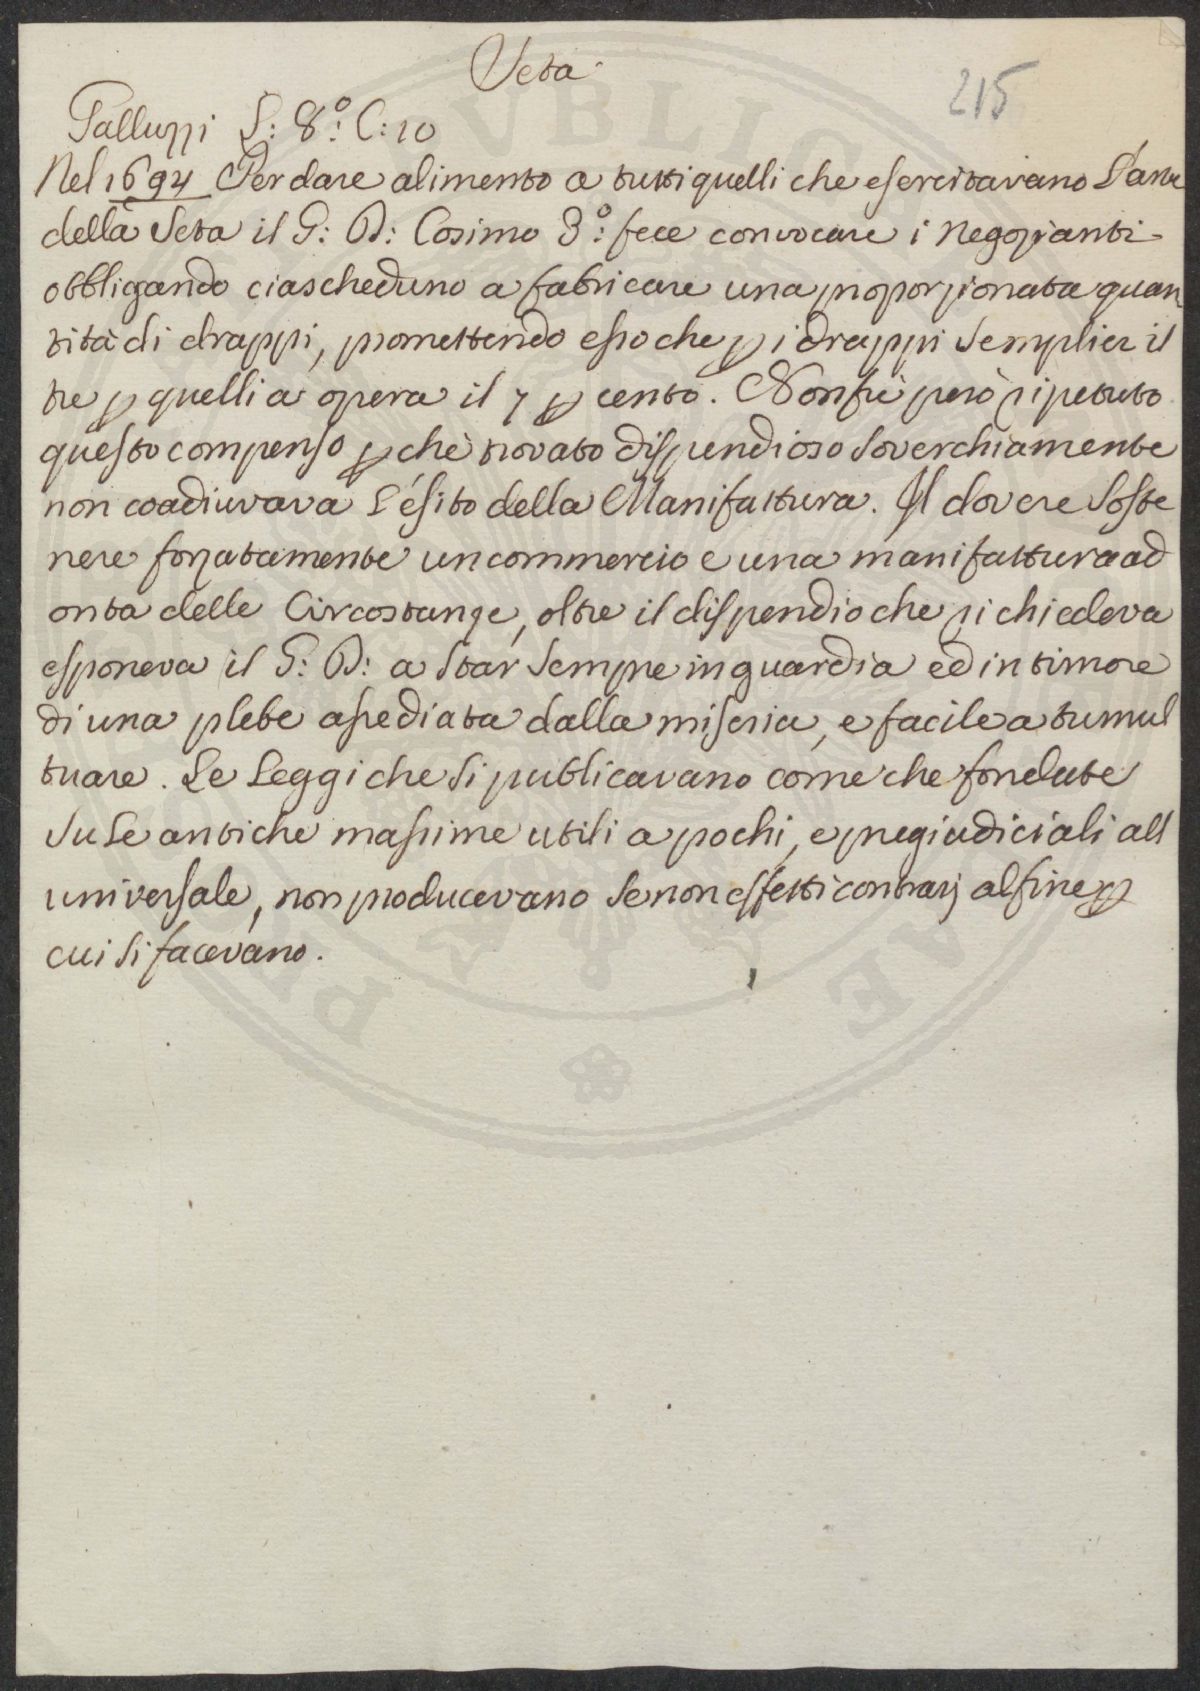 Seta
215
Galluzzi L: 8.º C: 10
Nel 1694 Per dare alimento a tutti quelli che esercitavano L'arte
della Seta il G: D: Cosimo 3.º fece convocare i Negozianti
obbligando ciascheduno a fabricare una proporzionata quan
tità di drappi, promettendo esso che p i drappi Semplici il
tre p quelli a opera il 7 p cento. Non fù però ripetuto
questo compenso pchè trovato dispendioso soverchiamente
non coadiuvava L'ésito della Manifattura. Il dovere Soste
nere forzatamente un commercio e una manifattura ad
onta delle Circostanze, oltre il dispendio che richiedeva
esponeva il G: D: a Star Sempre in guardia ed in timore
di una plebe assediata dalla miseria, e facile a tumul
tuare. Le Leggi che Si publicavano come che fondate
Su Le antiche massime utili a pochi, e pregiudiciali all
universale, non producevano Se non effetti contrarj al fine p
cui Si facevano.